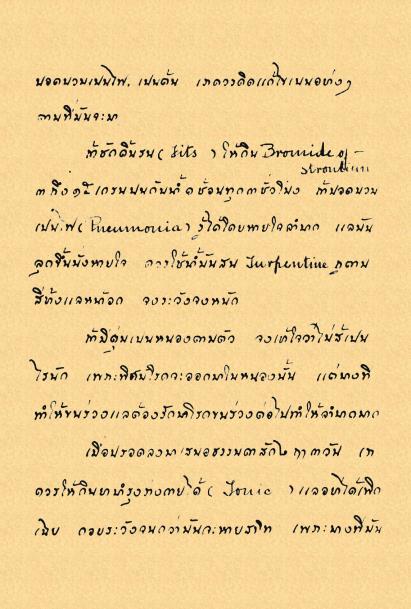 ปอดบวมเป็นไฟ, เป็นต้น เกิดวาคิดแก้ไขเปนอย่างๆ
ตามที่มันจะมา
ถ้าชักดิ้นรน ( fits ) ให้กิน Bromide of
Strontium
๓ ถึง ๑๕ เกรนปนกับน้ำ ช้อนทุก ๓ ชั่วโมง ถ้าปอดบวม
เปนไฟ ( Pneumonia ) รู้ได้โดยหายใจลำบาก แลมัน
ลุกขึ้นนั่งหายใจ ควรใช้น้ำมันสน Turpentine ทูตาม
สีข้างแลหน้าอก จงระวังจงหนัก
ถ้ามีตุ่มเปนหนองตามตัว จงเข้าใจว่าไม่สู้เปน
ไรนัก เพราะพิศม์โรคจะออกมาในหนองนั้น แต่บางที
ทำให้ขนร่วงแลต้องรักษาโรคขนร่วงต่อไปทำให้ลำบากมาก
เมื่อปรอดลงมาเสมอธรรมดาสัก ๒ ฤๅ ๓ วัน
ควรให้กินยาบำรุงร่างกายได้ ( Tonic ) แลอย่าได้เลิก
คอยระวังจนกว่ามันจะหายสนิท เพราะบางทีมัน